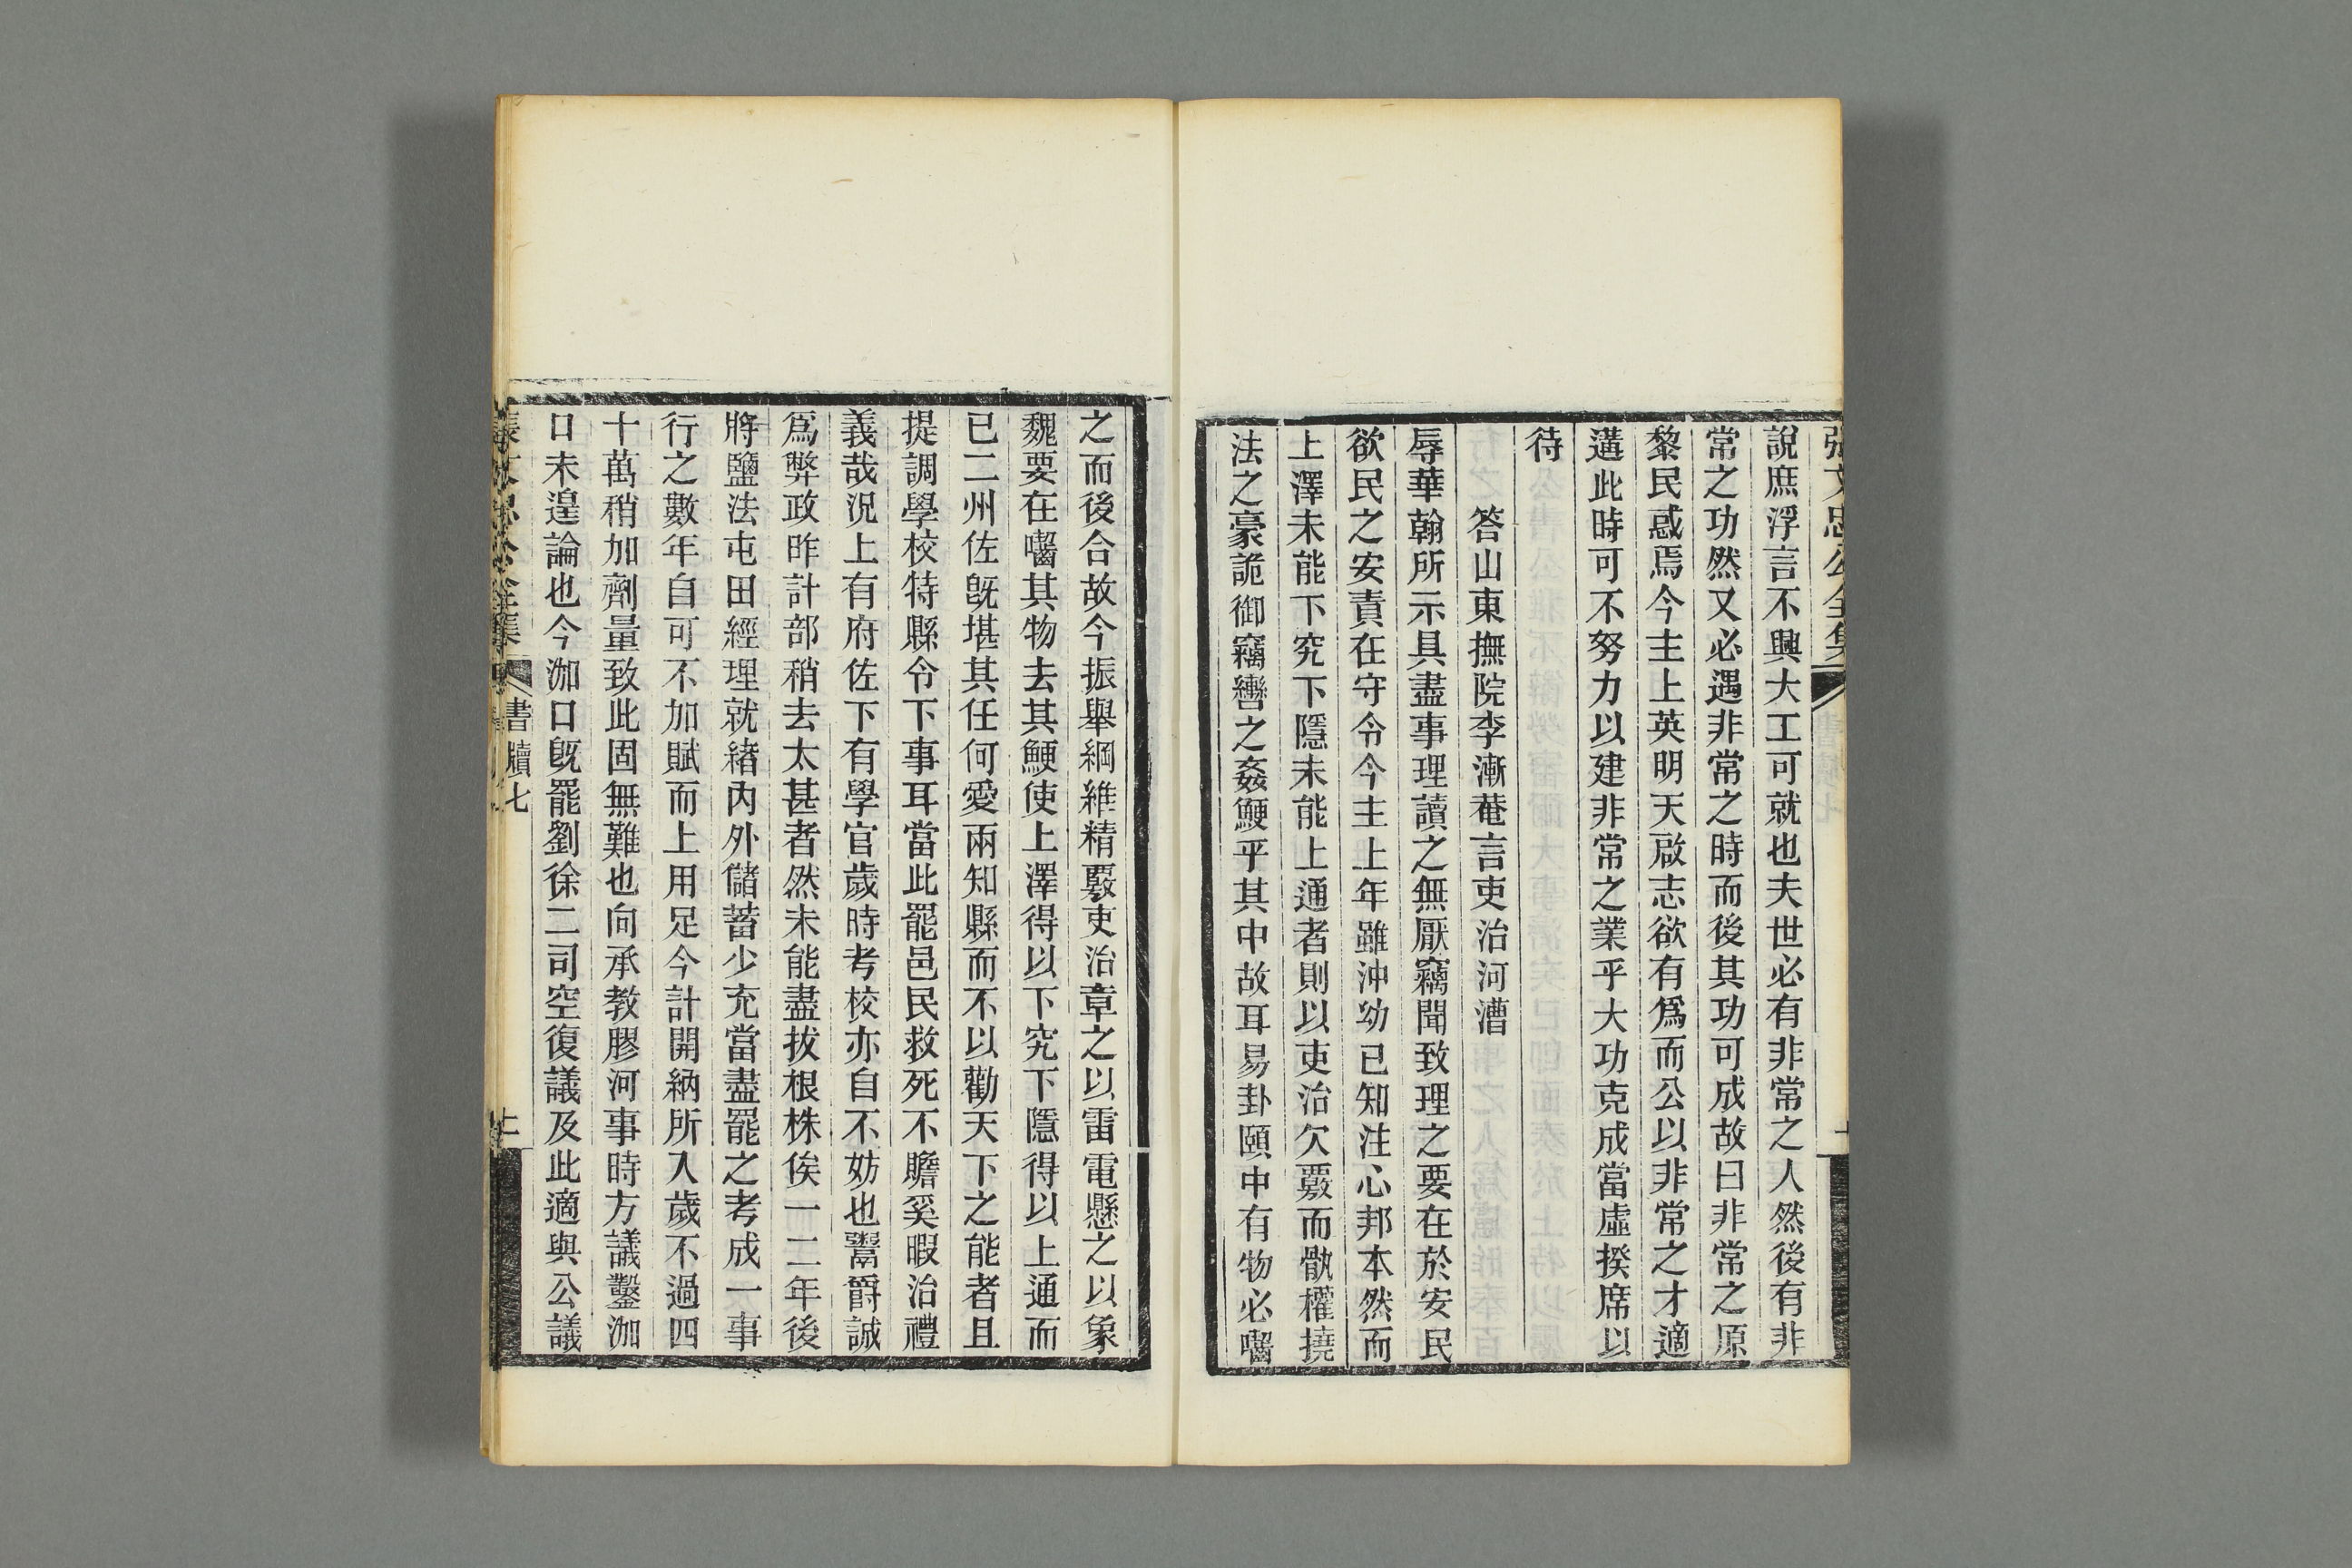 張文忠公全集
說庶浮言不興大工可就也夫世必有非常之人然後有非
常之功然又必遇非常之時而後其功可成故曰非常之原
黎民惑焉今主上英明天啟志欲有爲而公以非常之才適
遘此時可不努力以建非常之業乎大功克成當虛揆席以
待
答山東撫院李漸菴言吏治河漕
辱華翰所示具盡事理讀之無厭竊聞致理之要在於安民
欲民之安責在守令今主上年雖沖幼已知注心邦本然而
上澤未能下究下隱未能上通者則以吏治欠覈而骫權撓
法之豪詭御竊轡之姦鯁乎其中故耳易卦頤中有物必囓
之而後合故今振舉綱維精覈吏治章之以雷電懸之以象
魏要在囓其物去其鯁使上澤得以下究下隱得以上通而
已二州佐旣堪其任何愛兩知縣而不以勸天下之能者且
提調學校特縣令下事耳當此罷邑民救死不贍奚暇治禮
義哉況上有府佐下有學官歲時考校亦自不妨也鬻爵誠
爲弊政昨計部稍去太甚者然未能盡拔根株俟一二年後
將鹽法屯田經理就緒內外儲蓄少充當盡罷之考成一事
行之數年自可不加賦而上用足今計開納所入歲不過四
十萬稍加劑量致此固無難也向承教膠河事時方議鑿泇
口未遑論也今泇口旣罷劉徐二司空復議及此適與公議
書牘七